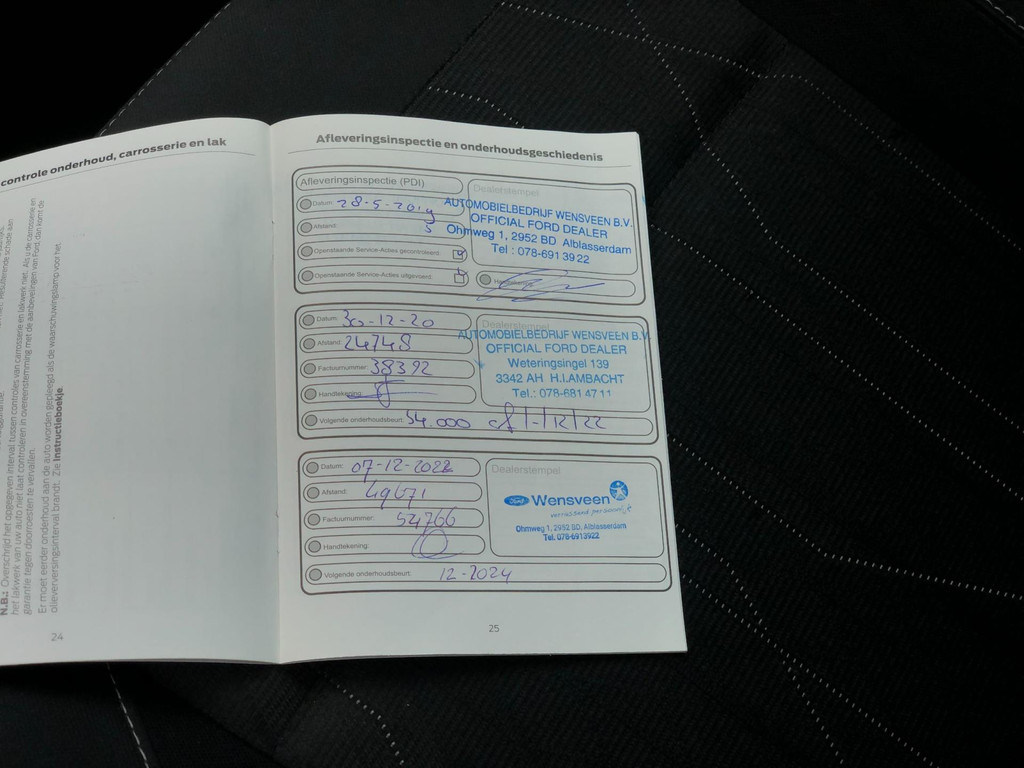 controle onderhoud, carrosserie en lak
N.B.: Overschrijd het opgegeven interval tussen controles van carrosserie en lakwerk niet. Als u de carrosserie en
het lakwerk van uw auto niet laat controleren in overeenstemming met de aanbevelingen van Ford, dan komt de
garantie tegen doorroesten te vervallen.
Er moet eerder onderhoud aan de auto worden gepleegd als de waarschuwingslamp voor het
olieverversingsinterval brandt. Zie Instructieboekje.
24
Afleveringsinspectie en onderhoudsgeschiedenis
Afleveringsinspectie (PDI)
Datum: 28-5-2019
Afstand: 5
Openstaande Service-Acties gecontroleerd:
Openstaande Service-Acties uitgevoerd:
Dealerstempel
AUTOMOBIELBEDRIJF WENSVEEN B.V.
OFFICIAL FORD DEALER
Ohmweg 1, 2952 BD Alblasserdam
Tel : 078-691 39 22
Datum: 30-12-20
Afstand: 24748
Factuurnummer: 38392
Handtekening:
Volgende onderhoudsbeurt: 54.000 of 1-12/22
Dealerstempel
AUTOMOBIELBEDRIJF WENSVEEN B.V.
OFFICIAL FORD DEALER
Weteringsingel 139
3342 AH H.I.AMBACHT
Tel.: 078-681 47 11
Datum: 07-12-2022
Afstand: 49671
Factuurnummer: 54766
Handtekening:
Volgende onderhoudsbeurt: 12-2024
Dealerstempel
Ford Wensveen
verrassend persoonlijk
Ohmweg 1, 2952 BD, Alblasserdam
Tel. 078-6913922
25